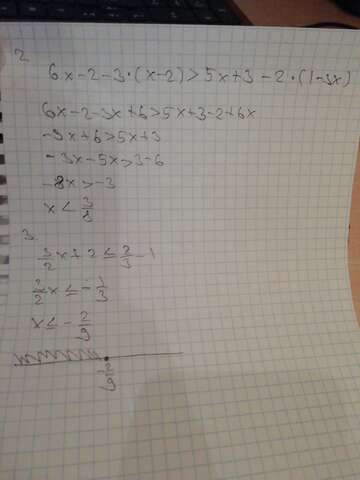 2
6x-2-3·(x-2)>5x+3-2·(1-3x)
6x-2-3x+6>5x+3-2+6x
-3x+6>5x+3
-3x-5x>3-6
-8x>-3
x<3/8
3.
3/2x+2≤2/3-1
2/2x≤-1/3
x≤-2/9
-2/9